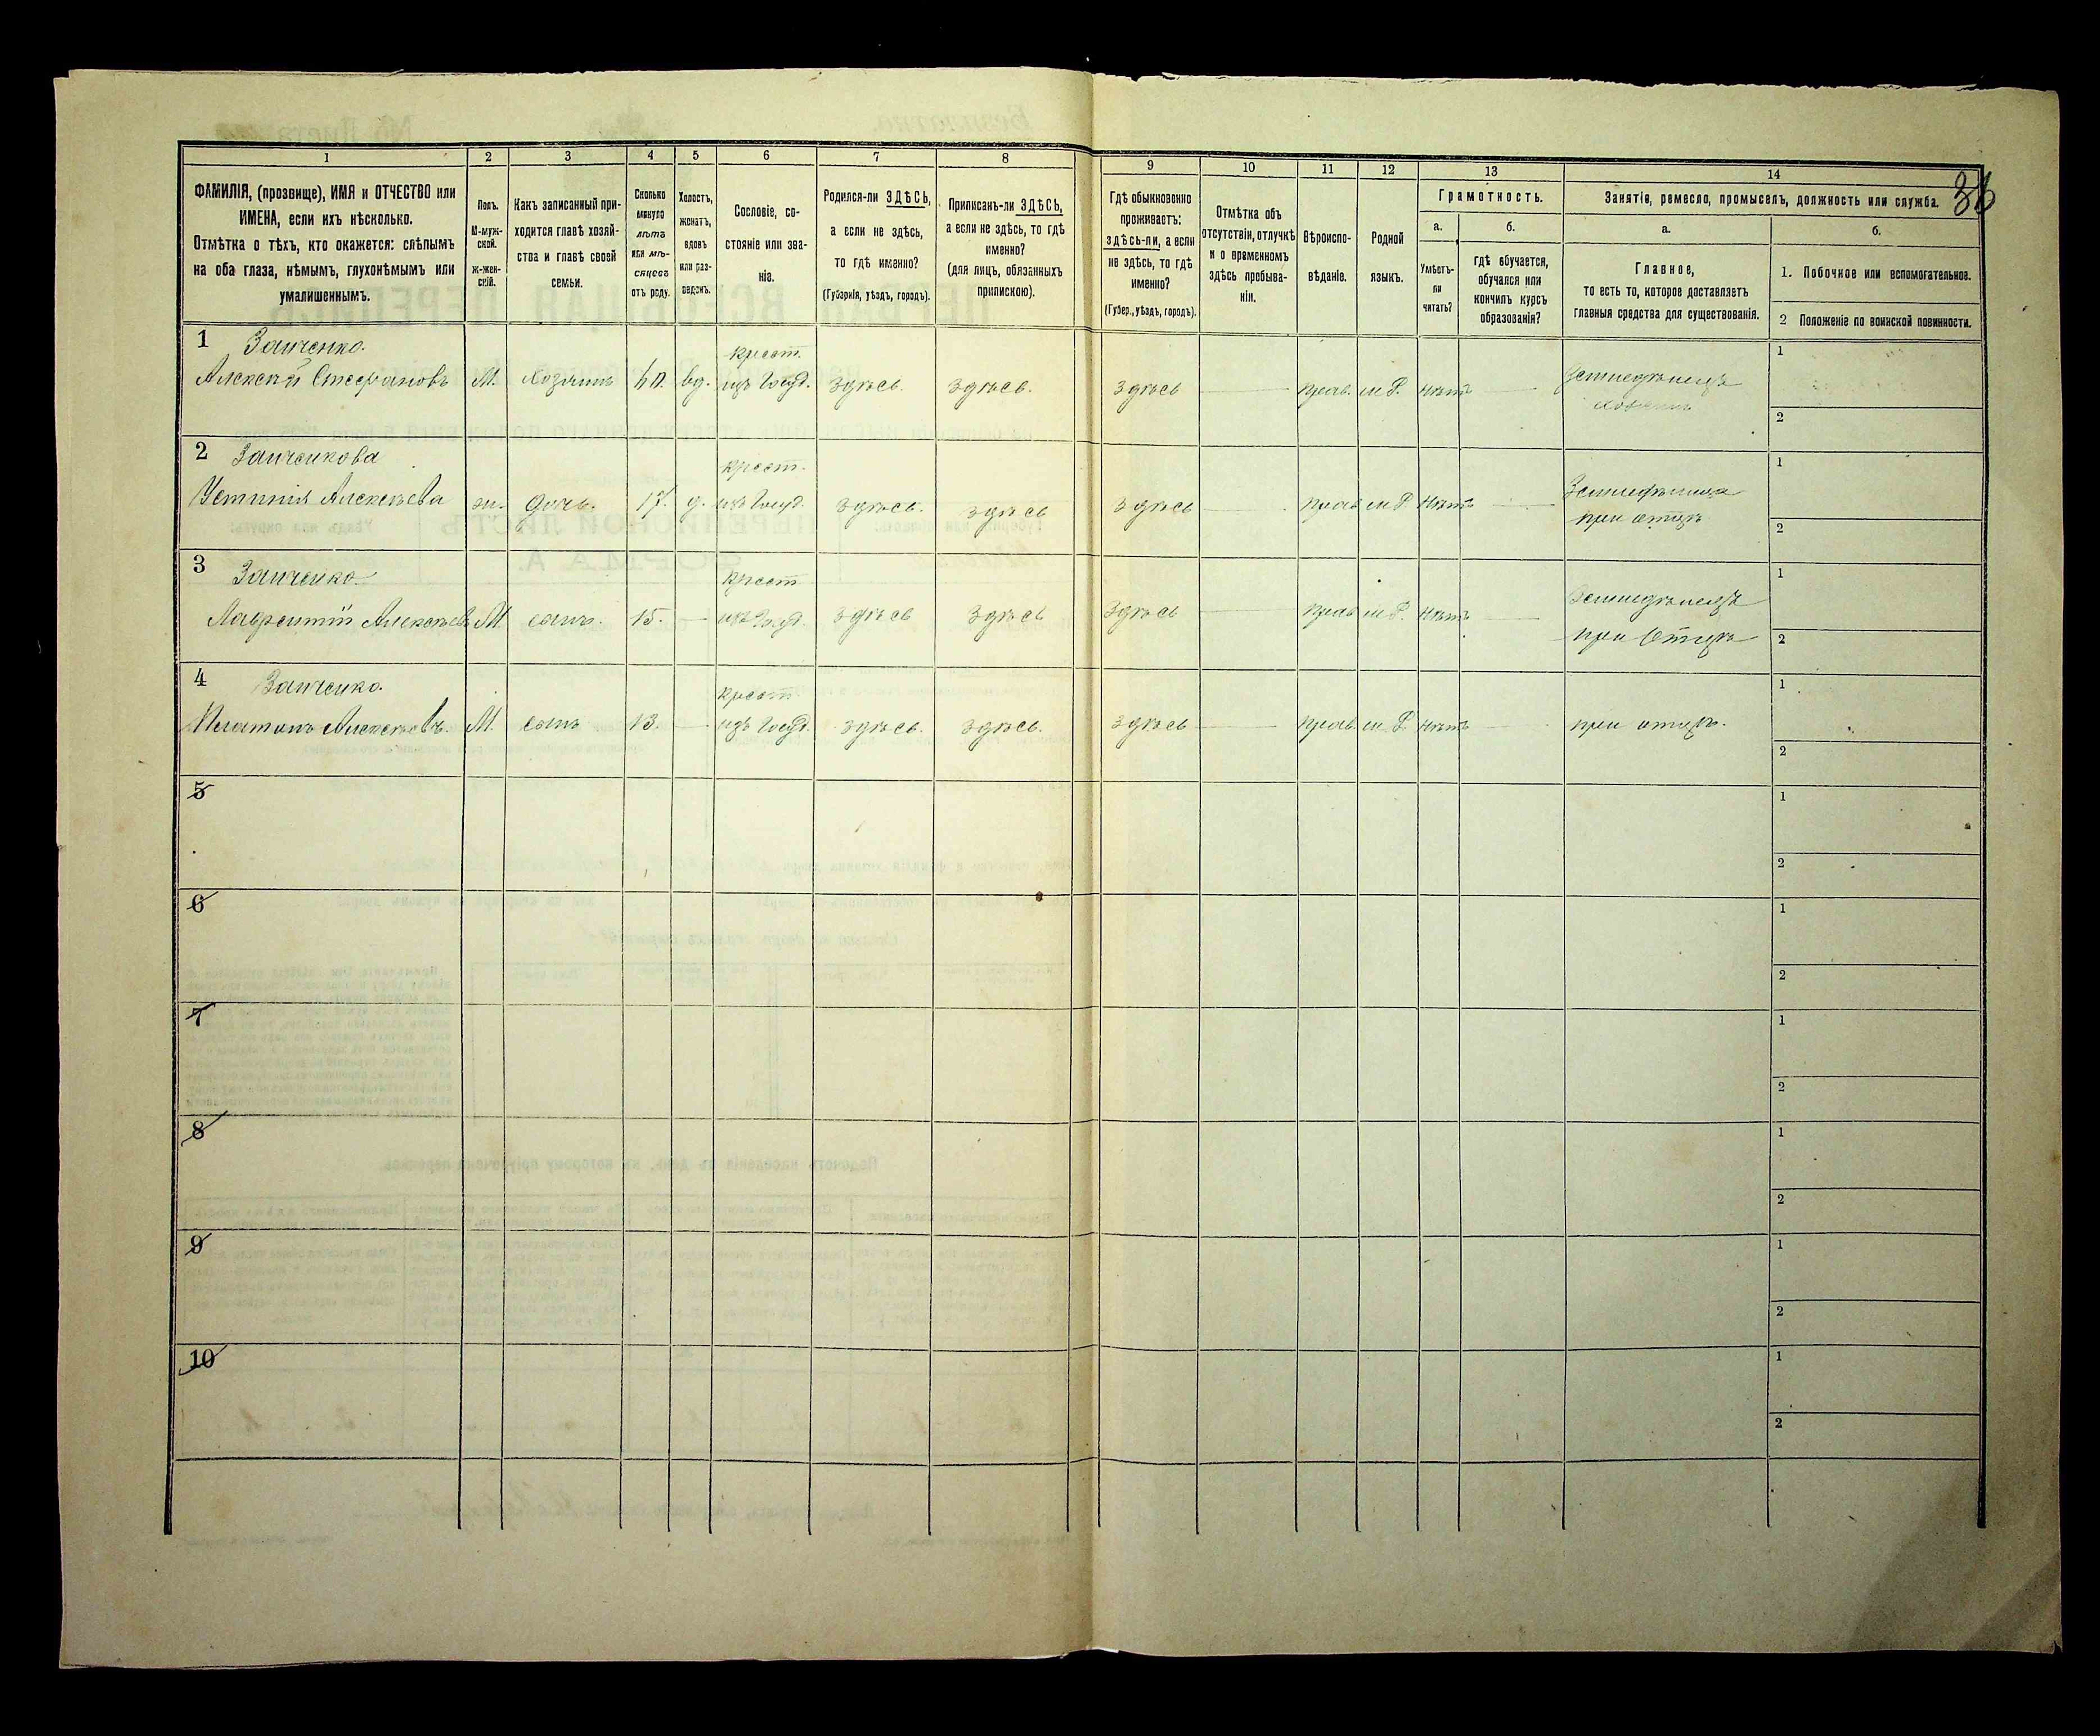 1 2 3 4 5 6 7 8 9 10 11 12 13 14
ФАМИЛІЯ, (прозвище), ИМЯ и ОТЧЕСТВО или
ИМЕНА, если ихъ нѣсколько.
Отмѣтка о тѣхъ, кто окажется: слѣпымъ
на оба глаза, нѣмымъ, глухонѣмымъ или
умалишеннымъ.
Полъ.
М-муж-
ской.
ж-жен-
скій.
Какъ записанный при-
ходится главѣ хозяй-
ства и главѣ своей
семьи.
Сколько
минуло
лѣтъ
или мѣ-
сяцевъ
отъ роду.
Холостъ,
женатъ,
вдовъ
или раз-
веденъ.
Сословіе, со-
стояніе или зва-
ніе.
Родился-ли ЗДѢСЬ,
а если не здѣсь,
то гдѣ именно?
(Губернія, уѣздъ, городъ).
Приписанъ-ли ЗДѢСЬ,
а если не здѣсь, то гдѣ
именно?
(для лицъ, обязанныхъ
припискою).
Гдѣ обыкновенно
проживаетъ:
здѣсь-ли, а если
не здѣсь, то гдѣ
именно?
(Губер., уѣздъ, городъ).
Отмѣтка объ
отсутствіи, отлучкѣ
и о временномъ
здѣсь пребыва-
ніи.
Вѣроиспо-
вѣданіе.
Родной
языкъ.
Грамотность.
а.
Умѣетъ-
ли
читать?
б.
гдѣ обучается,
обучался или
кончилъ курсъ
образованія?
Занятіе, ремесло, промыселъ, должность или служба.
а.
Главное,
то есть то, которое доставляетъ
главныя средства для существованія.
б.
1. Побочное или вспомогательное.
2 Положеніе по воинской повинности.
1 Заиченко. крест. 1
Алексѣй Стефановъ М. хозяинъ 60. вд. изъ Госуд. здѣсь. здѣсь. здѣсь прав. м Р. нѣтъ Земледѣлецъ
хозяинъ 2
2 Заиченкова крест. 1
Устинія Алексѣева ж. дочь. 17. д. изъ Госуд. здѣсь. здѣсь здѣсь прав м Р нѣтъ
при отцѣ 2
3 Заиченко крест 1
Лаврентій Алексѣевъ М. сынъ. 15. изъ Госуд. здѣсь здѣсь здѣсь прав м Р. нѣтъ Земледѣлецъ
при Отцѣ 2
4 Заиченко. крест. 1
Платонъ Алексѣевъ. М. сынъ 13. изъ Госуд. здѣсь. здѣсь. здѣсь прав. м Р. нѣтъ при отцѣ. 2
5 1
2
6 1
2
7 1
2
8 1
2
9 1
2
10 1
2